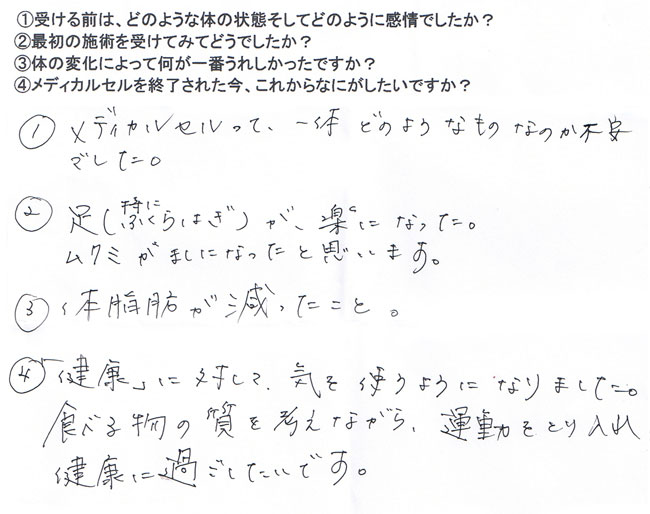 ①受ける前は、どのような体の状態そしてどのように感情でしたか？
②最初の施術を受けてみてどうでしたか？
③体の変化によって何が一番うれしかったですか？
④メディカルセルを終了された今、これからなにがしたいですか？
① メディカルセルって、一体どのようなものなのか不安
でした。
② 足(特にふくらはぎ)が、楽になった。
ムクミがましになったと思います。
③ 体脂肪が減ったこと。
④ 「健康」に対して、気を使うようになりました。
食べる物の質を考えながら、運動をとり入れ
健康に過ごしたいです。